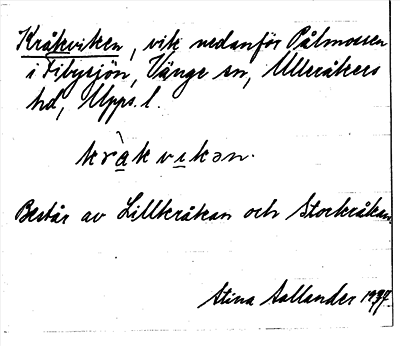 Kråkviken, vik nedanför Pålmossen
i Fibysjön, Vänge sn, Ulleråkers
hd, Upps. l.
kràkvikən.
Består av Lillkråkan och Storkråkan.
Stina Sallander 1934.